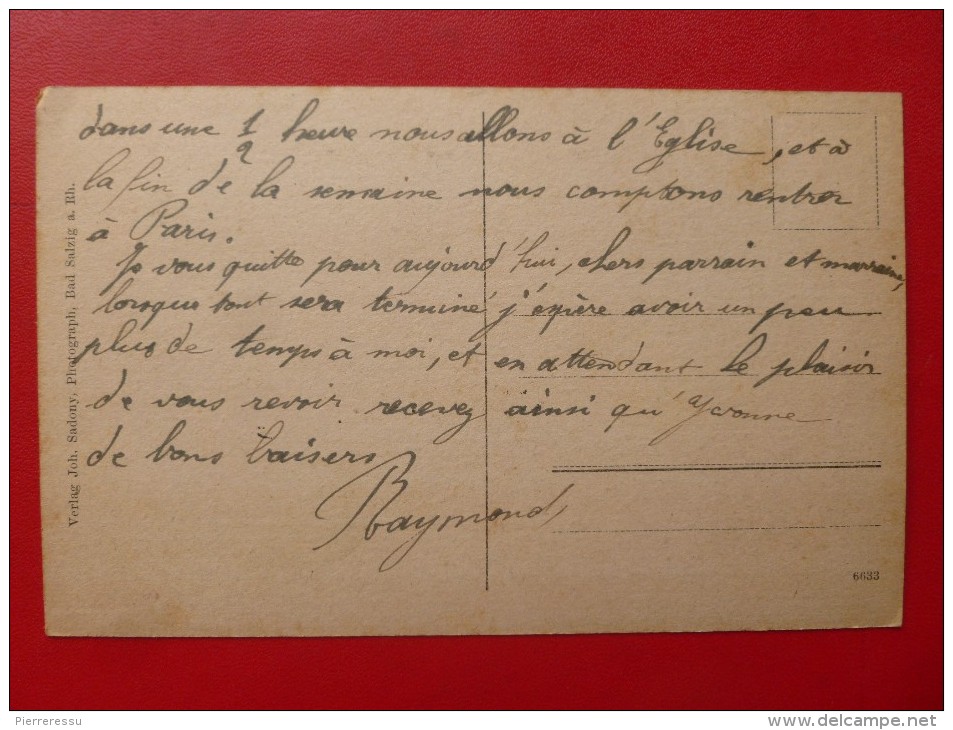 dans une 1/2 heure nous allons à l'Eglise, et à
la fin de la semaine nous comptons rentrer
à Paris.
Je vous quitte pour aujourd'hui, chers parrain et marraine,
lorsque tout sera terminé j'expère avoir un peu
plus de temps à moi, et en attendant le plaisir
de vous revoir recevez ainsi qu'Yvonne
de bons baisers
Raymond,
Verlag Joh. Sadony, Photograph, Bad Salzig a. Rh.
6633
Pierreressu
www.delcampe.net